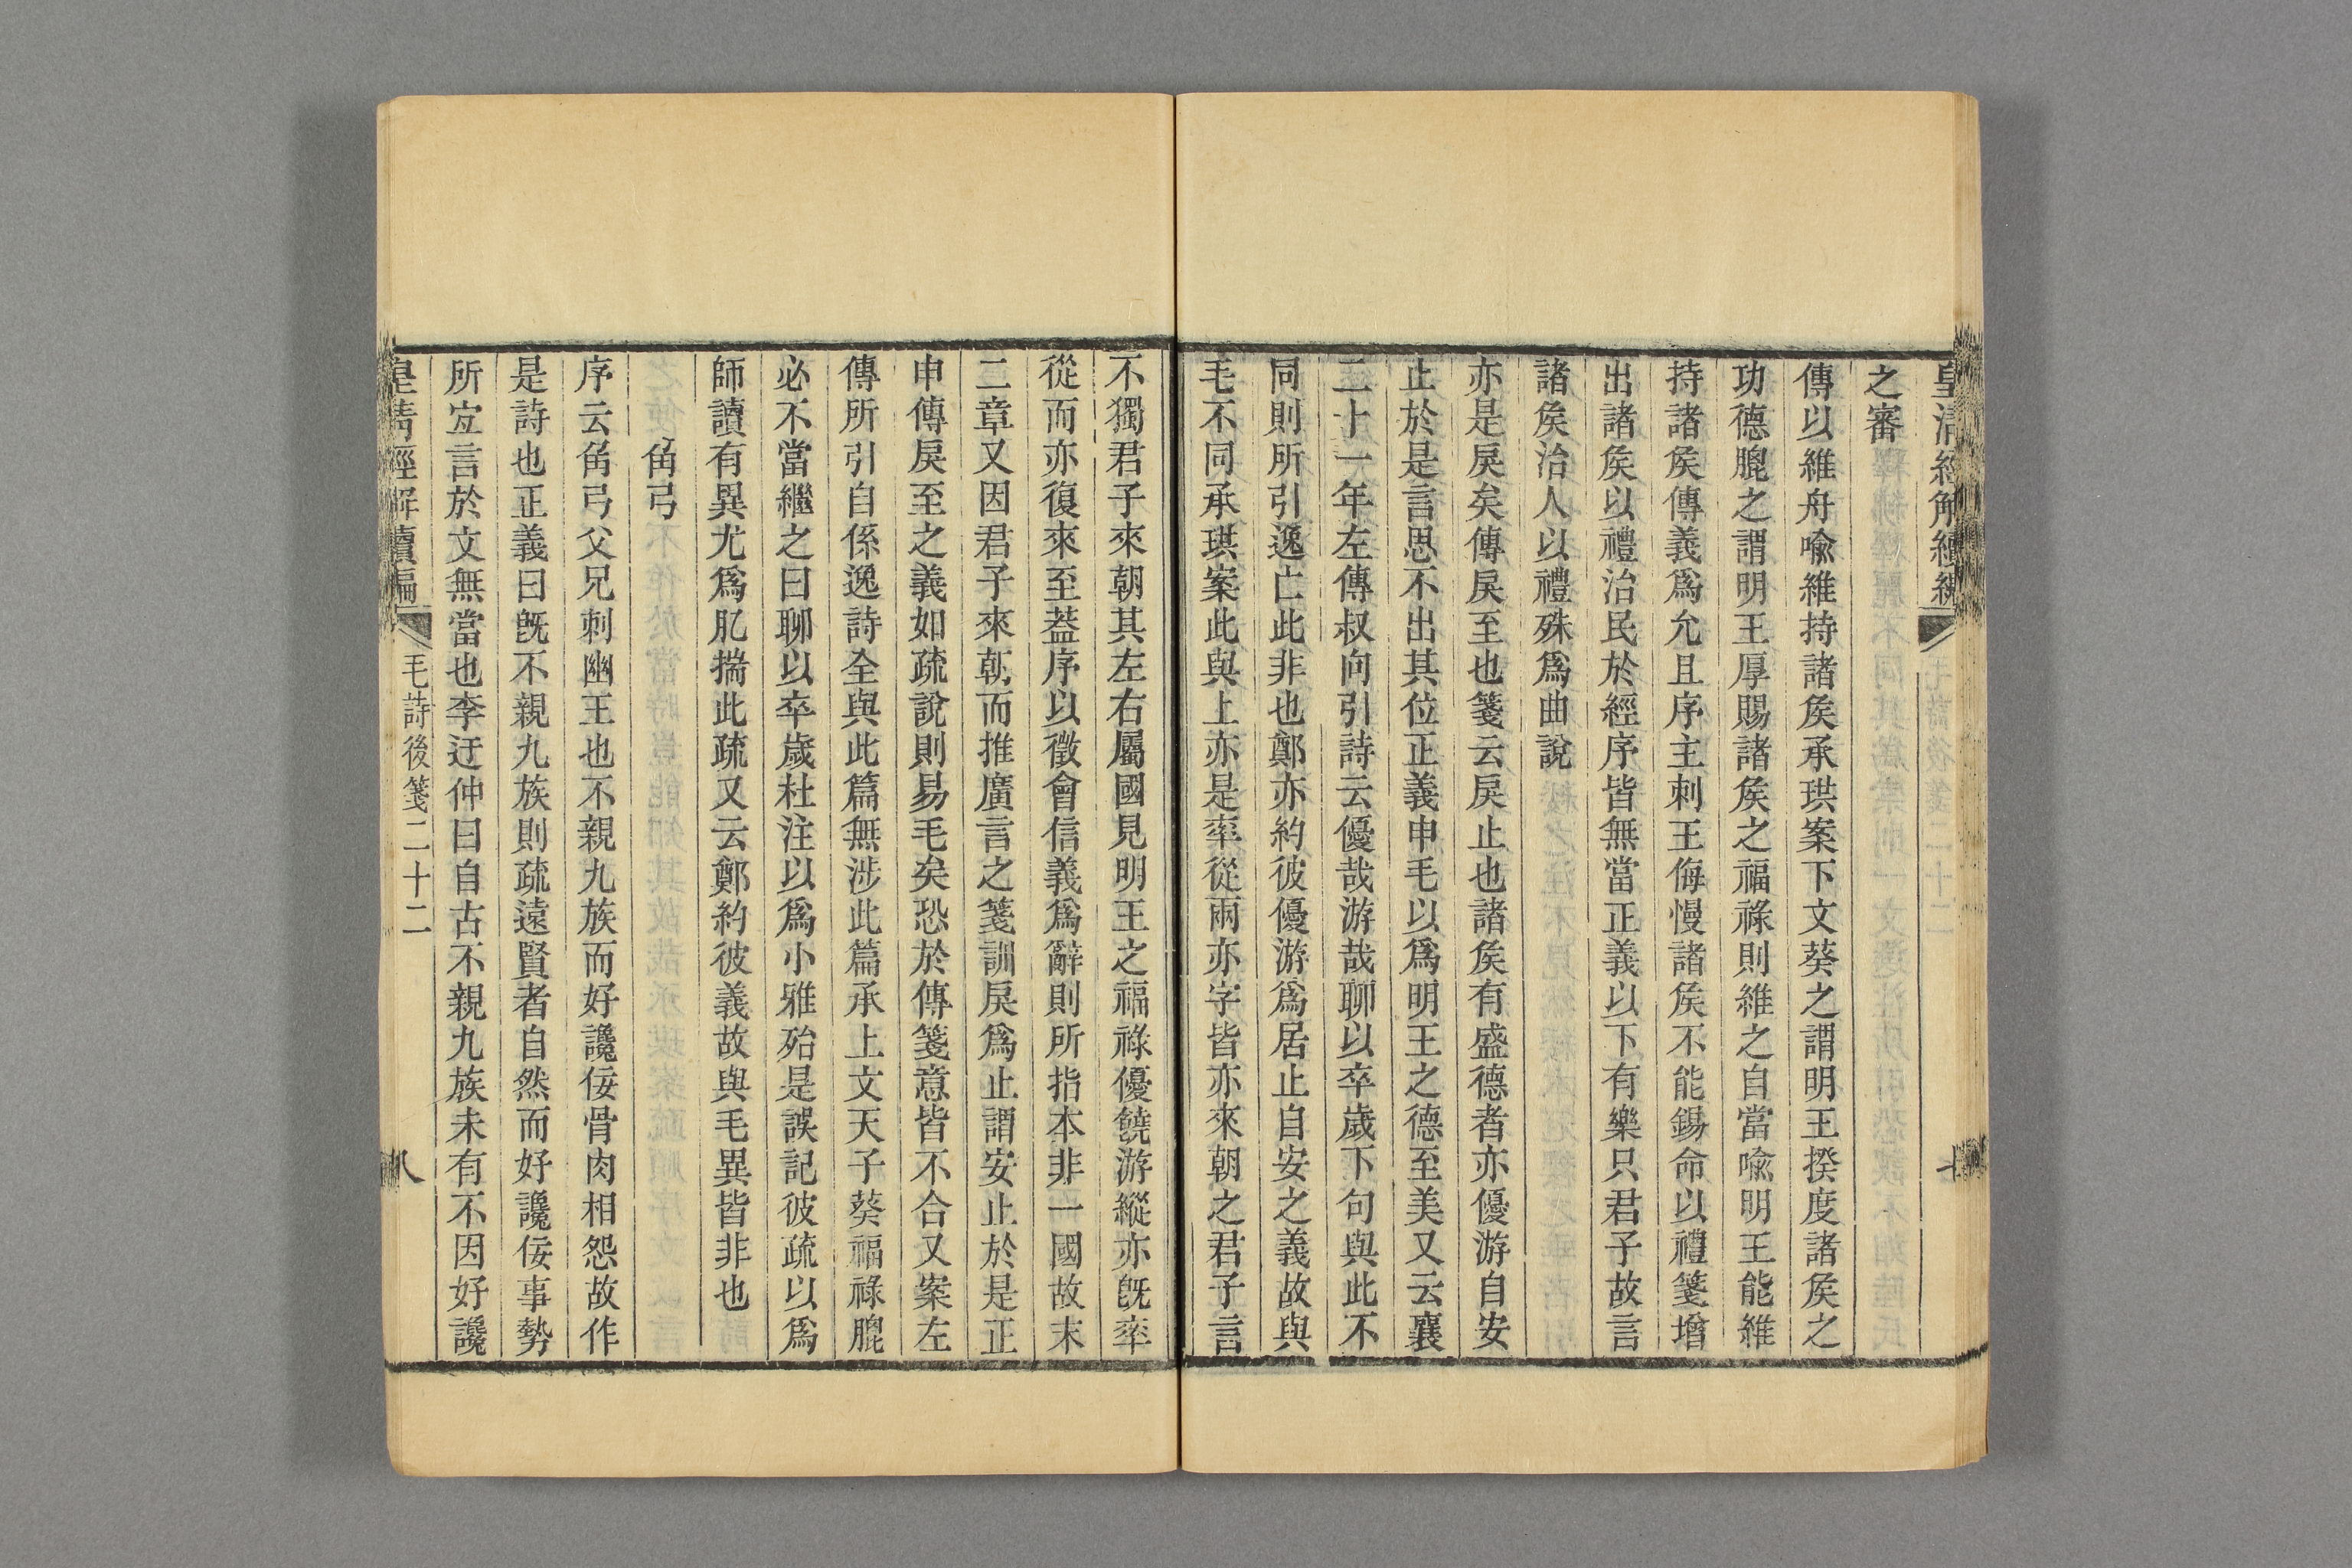 皇清經解續編
之審
傳以維舟喻維持諸矦承珙案下文葵之謂明王揆度諸矦之
功德膍之謂明王厚賜諸矦之福祿則維之自當喻明王能維
持諸矦傳義爲允且序主刺王侮慢諸矦不能錫命以禮箋增
出諸矦以禮治民於經序皆無當正義以下有樂只君子故言
諸矦治人以禮殊爲曲說
亦是戾矣傳戾至也箋云戾止也諸矦有盛德者亦優游自安
止於是言思不出其位正義申毛以爲明王之德至美又云襄
二十一年左傳叔向引詩云優哉游哉聊以卒歲下句與此不
同則所引逸亡此非也鄭亦約彼優游爲居止自安之義故與
毛不同承珙案此與上亦是率從兩亦字皆亦來朝之君子言
不獨君子來朝其左右屬國見明王之福祿優饒游縱亦旣率
從而亦復來至葢序以徵會信義爲辭則所指本非一國故末
二章又因君子來朝而推廣言之箋訓戾爲止謂安止於是正
申傳戾至之義如疏說則易毛矣恐於傳箋意皆不合又案左
傳所引自係逸詩全與此篇無涉此篇承上文天子葵福祿膍
必不當繼之曰聊以卒歲杜注以爲小雅殆是誤記彼疏以爲
師讀有異尤爲肊揣此疏又云鄭約彼義故與毛異皆非也
角弓
序云角弓父兄刺幽王也不親九族而好讒佞骨肉相怨故作
是詩也正義曰旣不親九族則疏遠賢者自然而好讒佞事勢
所宐言於文無當也李迂仲曰自古不親九族未有不因好讒
皇清經解續編 毛詩後箋二十二 八